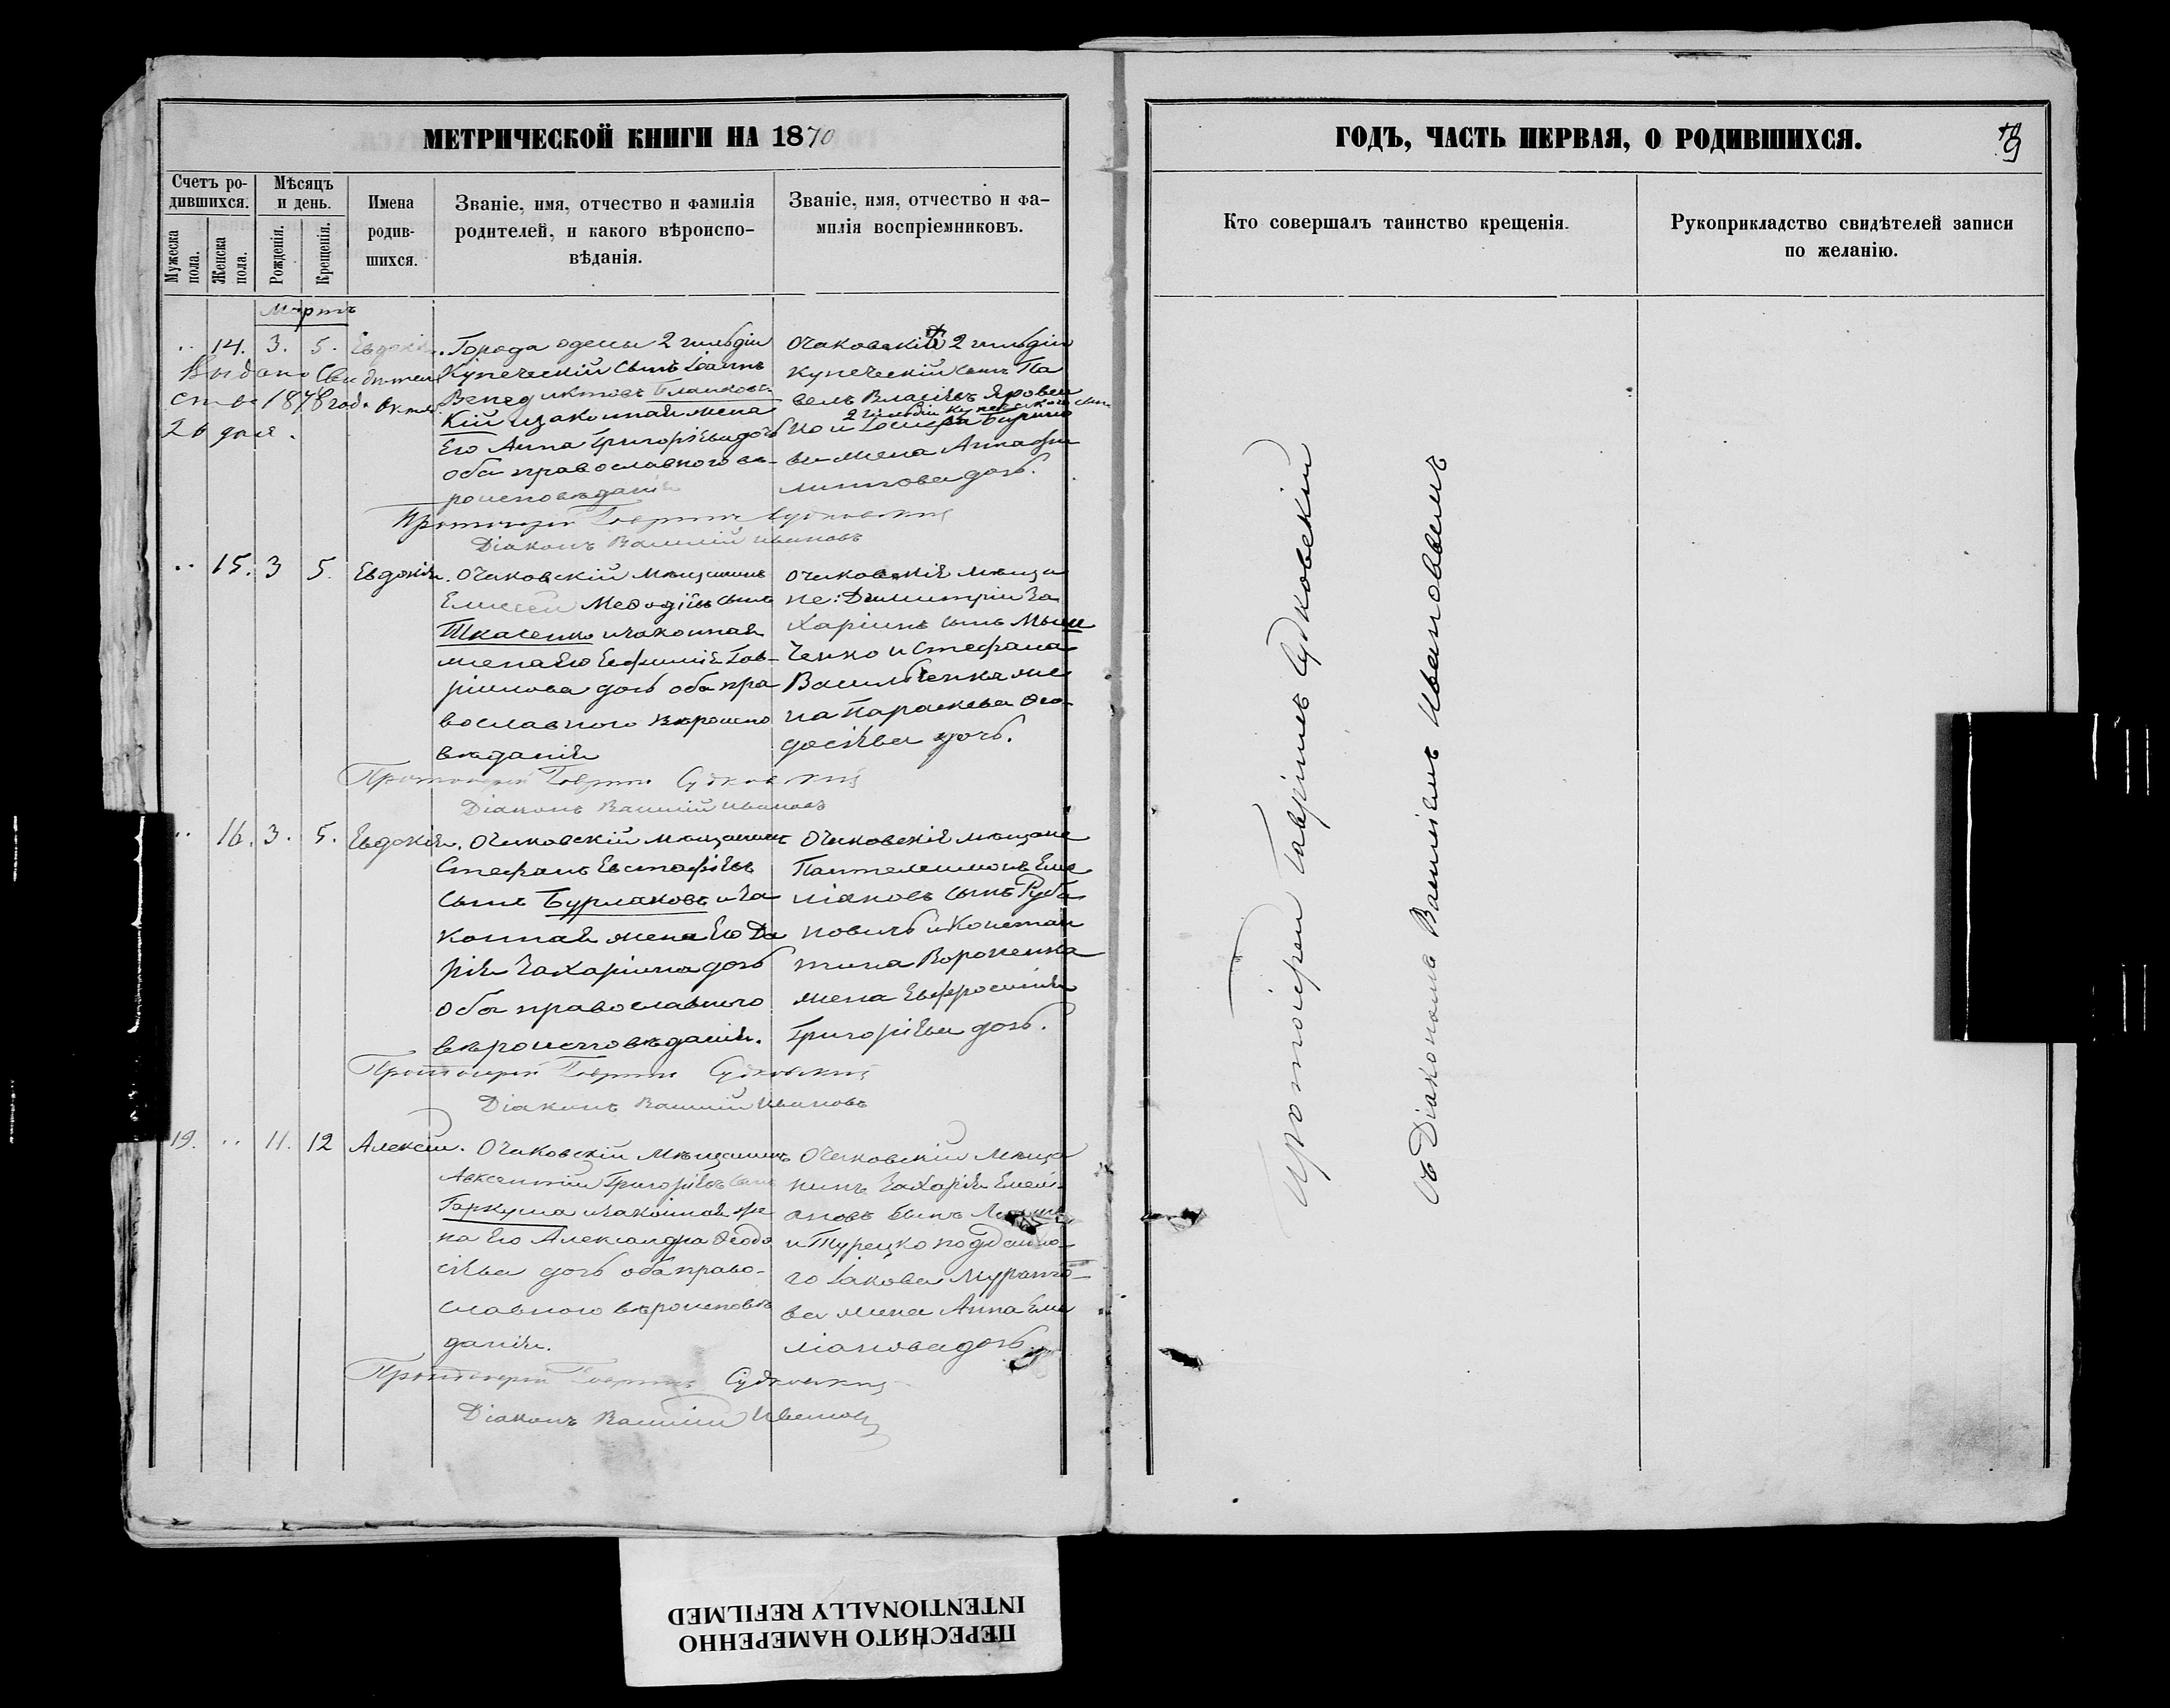 МЕТРИЧЕСКОЙ КНИГИ НА 1870
Счетъ ро-
дившихся.
Мужеска
пола.
Женска
пола.
Мѣсяцъ
и день.
Рожденія.
Крещенія.
Имена
родив-
шихся.
Званіе, имя, отчество и фамилія
родителей, и какого вѣроиспо-
вѣданія.
Званіе, имя, отчество и фа-
милія воспріемниковъ.
Мартъ
.. 14. 3. 5. Евдокія.
Выдано Свидѣтель
ство 1878 года Октяб.
26 дня.
Города Одессы 2 гильдіи
Купеческій Сынъ Іоаннъ
Венедиктовъ Бланковс
кій и законная жена
Его Анна Григоріева дочь
оба православнаго вѣ-
роисповѣданія
Очаковскій 2 гильдіи
купеческій сынъ Па
велъ Власіевъ Яровен
2 гильдіи купеческаго сына
ко и Іосифа
ва жена Анна
дочь.
Протоіерей Гавріилъ Судковскій
Діаконъ Василій Ивановъ
.. 15. 3 5. Евдокія.
Очаковскій мѣщанинъ
Елисей Меѳодіевъ сынъ
Ткаченко и законная
жена Его Евфимія Гав-
ріилова дочь оба пра
вославнаго вѣроиспо
вѣданія
Очаковскіе мѣща
не: Димитрій За
харіинъ сынъ
ченко и Стефана
Васильченка же
на Параскева Ѳео-
досіева дочь.
Протоіерей Гавріилъ Судковскій
Діаконъ Василій Ивановъ
.. 16. 3. 5. Евдокія.
Очаковскій мѣщанинъ
Стефанъ Евстафіевъ
сынъ Бурлаковъ и за
конная жена Его Да
рія Захаріина дочь
оба православнаго
вѣроисповѣданія.
Очаковскіе мѣщане
Пантелеимонъ Еме
ліановъ сынъ Руба
новичь и Констан
тина Вороненка
жена Евфросинія
Григоріева дочь.
Протоіерей Гавріилъ Судковскій
Діаконъ Василій Ивановъ
19. .. 11. 12 Алексій.
Очаковскій Мѣщанинъ
Авксентій Григоріевъ сынъ
Гаркуша и законная же
на Его Александра Ѳеодо
сіева дочь оба право-
славнаго вѣроисповѣ
данія.
Очаковскій Мѣща
нинъ Захарія Емелі-
ановъ сынъ
и Турецко подданно-
го Іакова Мурато-
ва жена Анна Еме
ліанова дочь
Протоіерей Гавріилъ Судковскій
Діаконъ Василій Ивановъ
ГОДЪ, ЧАСТЬ ПЕРВАЯ, О РОДИВШИХСЯ.
9
Кто совершалъ таинство крещенія.
Рукоприкладство свидѣтелей записи
по желанію.
Протоіерей Гавріилъ Судковскій
съ Діакономъ Василіемъ Ивановымъ
ПЕРЕСНЯТО НАМЕРЕННО
INTENTIONALLY REFILMED